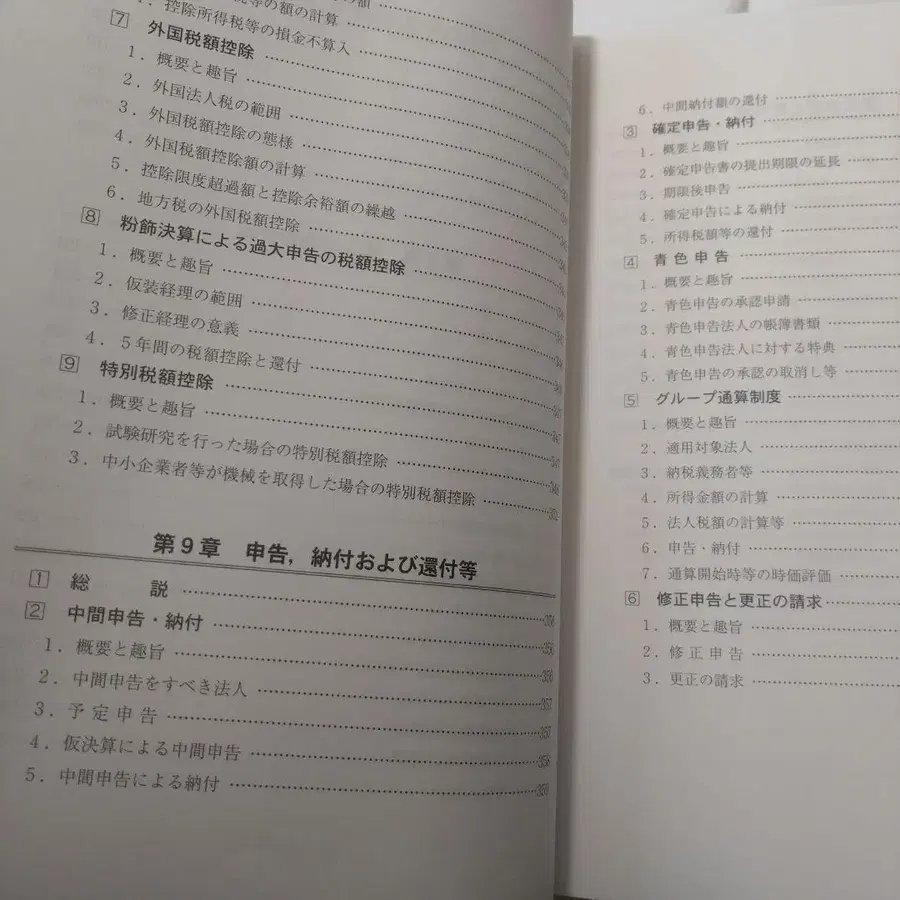 の額
税等の額の計算
控除所得税等の損金不算入
7 外国税額控除
1．概要と趣旨
2．外国法人税の範囲
3．外国税額控除の態様
4．外国税額控除額の計算
5．控除限度超過額と控除余裕額の繰越
6．地方税の外国税額控除
8 粉飾決算による過大申告の税額控除
1．概要と趣旨
2．仮装経理の範囲
3．修正経理の意義
4．5年間の税額控除と還付
9 特別税額控除
1．概要と趣旨 347
2．試験研究を行った場合の特別税額控除 347
3．中小企業者等が機械を取得した場合の特別税額控除
第9章 申告，納付および還付等
1 総説 356
2 中間申告・納付 356
1．概要と趣旨 356
2．中間申告をすべき法人 357
3．予定申告 357
4．仮決算による中間申告 358
5．中間申告による納付 359
6．中間納付額の還付
3 確定申告・納付
1．概要と趣旨
2．確定申告書の提出期限の延長
3．期限後申告
4．確定申告による納付
5．所得税額等の還付
4 青色申告
1．概要と趣旨
2．青色申告の承認申請
3．青色申告法人の帳簿書類
4．青色申告法人に対する特典
5．青色申告の承認の取消し等
5 グループ通算制度
1．概要と趣旨
2．適用対象法人
3．納税義務者等
4．所得金額の計算
5．法人税額の計算等
6．申告・納付
7．通算開始時等の時価評価
6 修正申告と更正の請求
1．概要と趣旨
2．修正申告
3．更正の請求